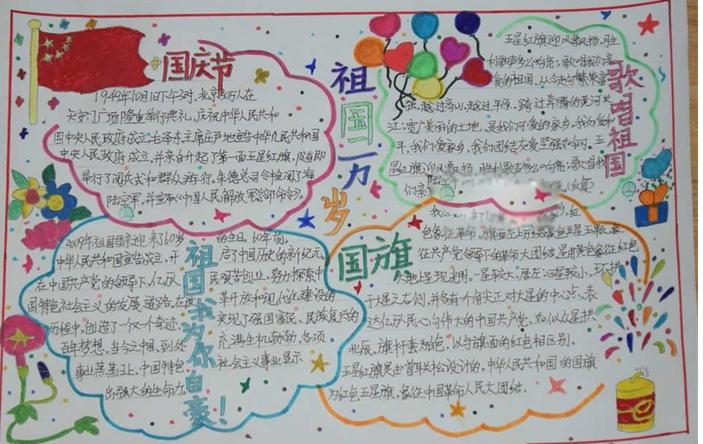 国庆节
1949年10月1日下午3时,北京30万人在
天安门广场隆重举行典礼,庆祝中华人民共和
国中央人民政府成立。毛泽东主席庄严地宣告中华人民共和国
中央人民政府成立,并亲自升起了第一面五星红旗,随即
举行了阅兵式和群众游行,朱德总司令检阅了海
陆空军,并宣布《中国人民解放军总部命令》。
祖国万岁
歌唱祖国
五星红旗迎风飘扬,胜
利歌声多么响亮;歌唱我们亲
爱的祖国,从今走向繁荣富
强。越过高山,越过平原,跨过奔腾的黄河长
江;宽广美丽的土地,是我们可爱的家乡,我们爱和
平,我们爱家乡,我们团结友爱坚强如钢。五
星红旗迎风飘扬,胜利歌声多么响亮;歌唱我
们亲
祖国我为你自豪!
2009年祖国母亲迎来了60岁的生日。60年前,
中华人民共和国宣告成立,开启了中国历史的新纪元
在中国共产党的领导下,亿万民艰苦创业,努力探索中
国特色社会主义的发展道路,在改革开放和现代化建设的
历程中,创造了一次又一个奇迹,实现了强国富民、民族复兴的
百年梦想。当今之中国,到处充满生机勃勃,各项
事业蒸蒸日上,中国特色社会主义事业显示
出强大的生命力
国旗
红
色象征革命,旗面左上方
征共产党领导下的革命大团结,星用黄色象征红色
大地上呈现光明,一星较大,居左,四星较小,环拱
于大星之右侧,并各有一个角尖正对大星的中心点,表
达亿万人民心向伟大的中国共产党,如似众星拱
北辰,旗杆套为白色,以与旗面的红色相区别。
五星红旗是由曾联松设计的。中华人民共和国的国旗
为红色五星旗,象征中国革命人民大团结。